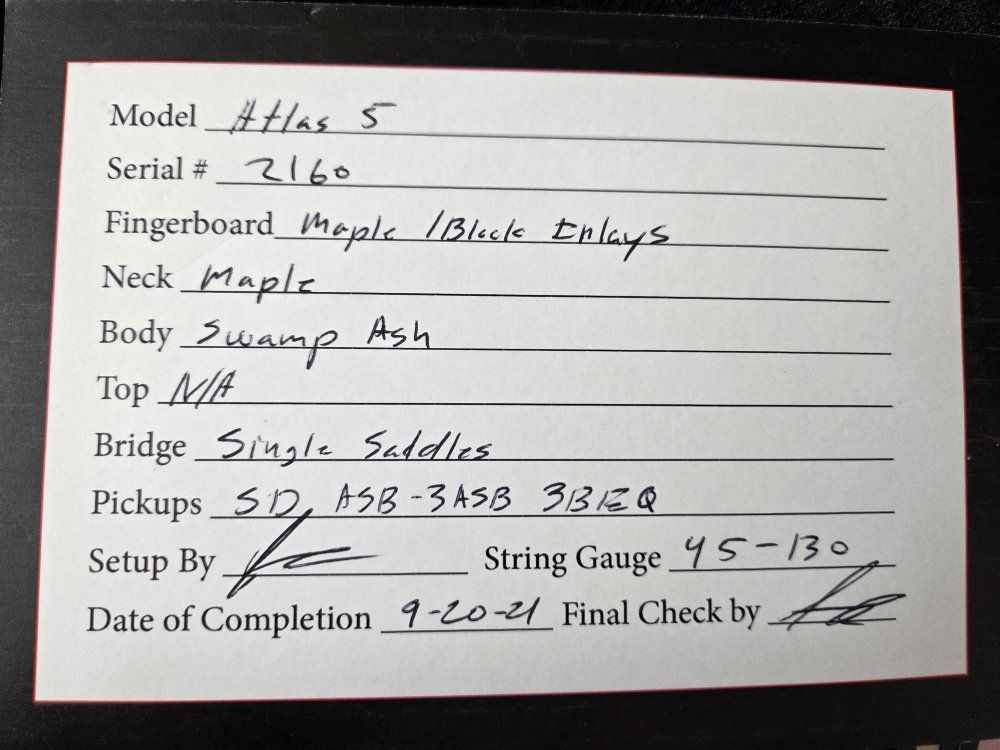 Model Atlas 5
Serial # 2160
Fingerboard Maple / Block Inlays
Neck Maple
Body Swamp Ash
Top N/A
Bridge Single Saddles
Pickups SD, ASB-3 ASB 3BEQ
Setup By String Gauge 45-130
Date of Completion 9-20-21 Final Check by